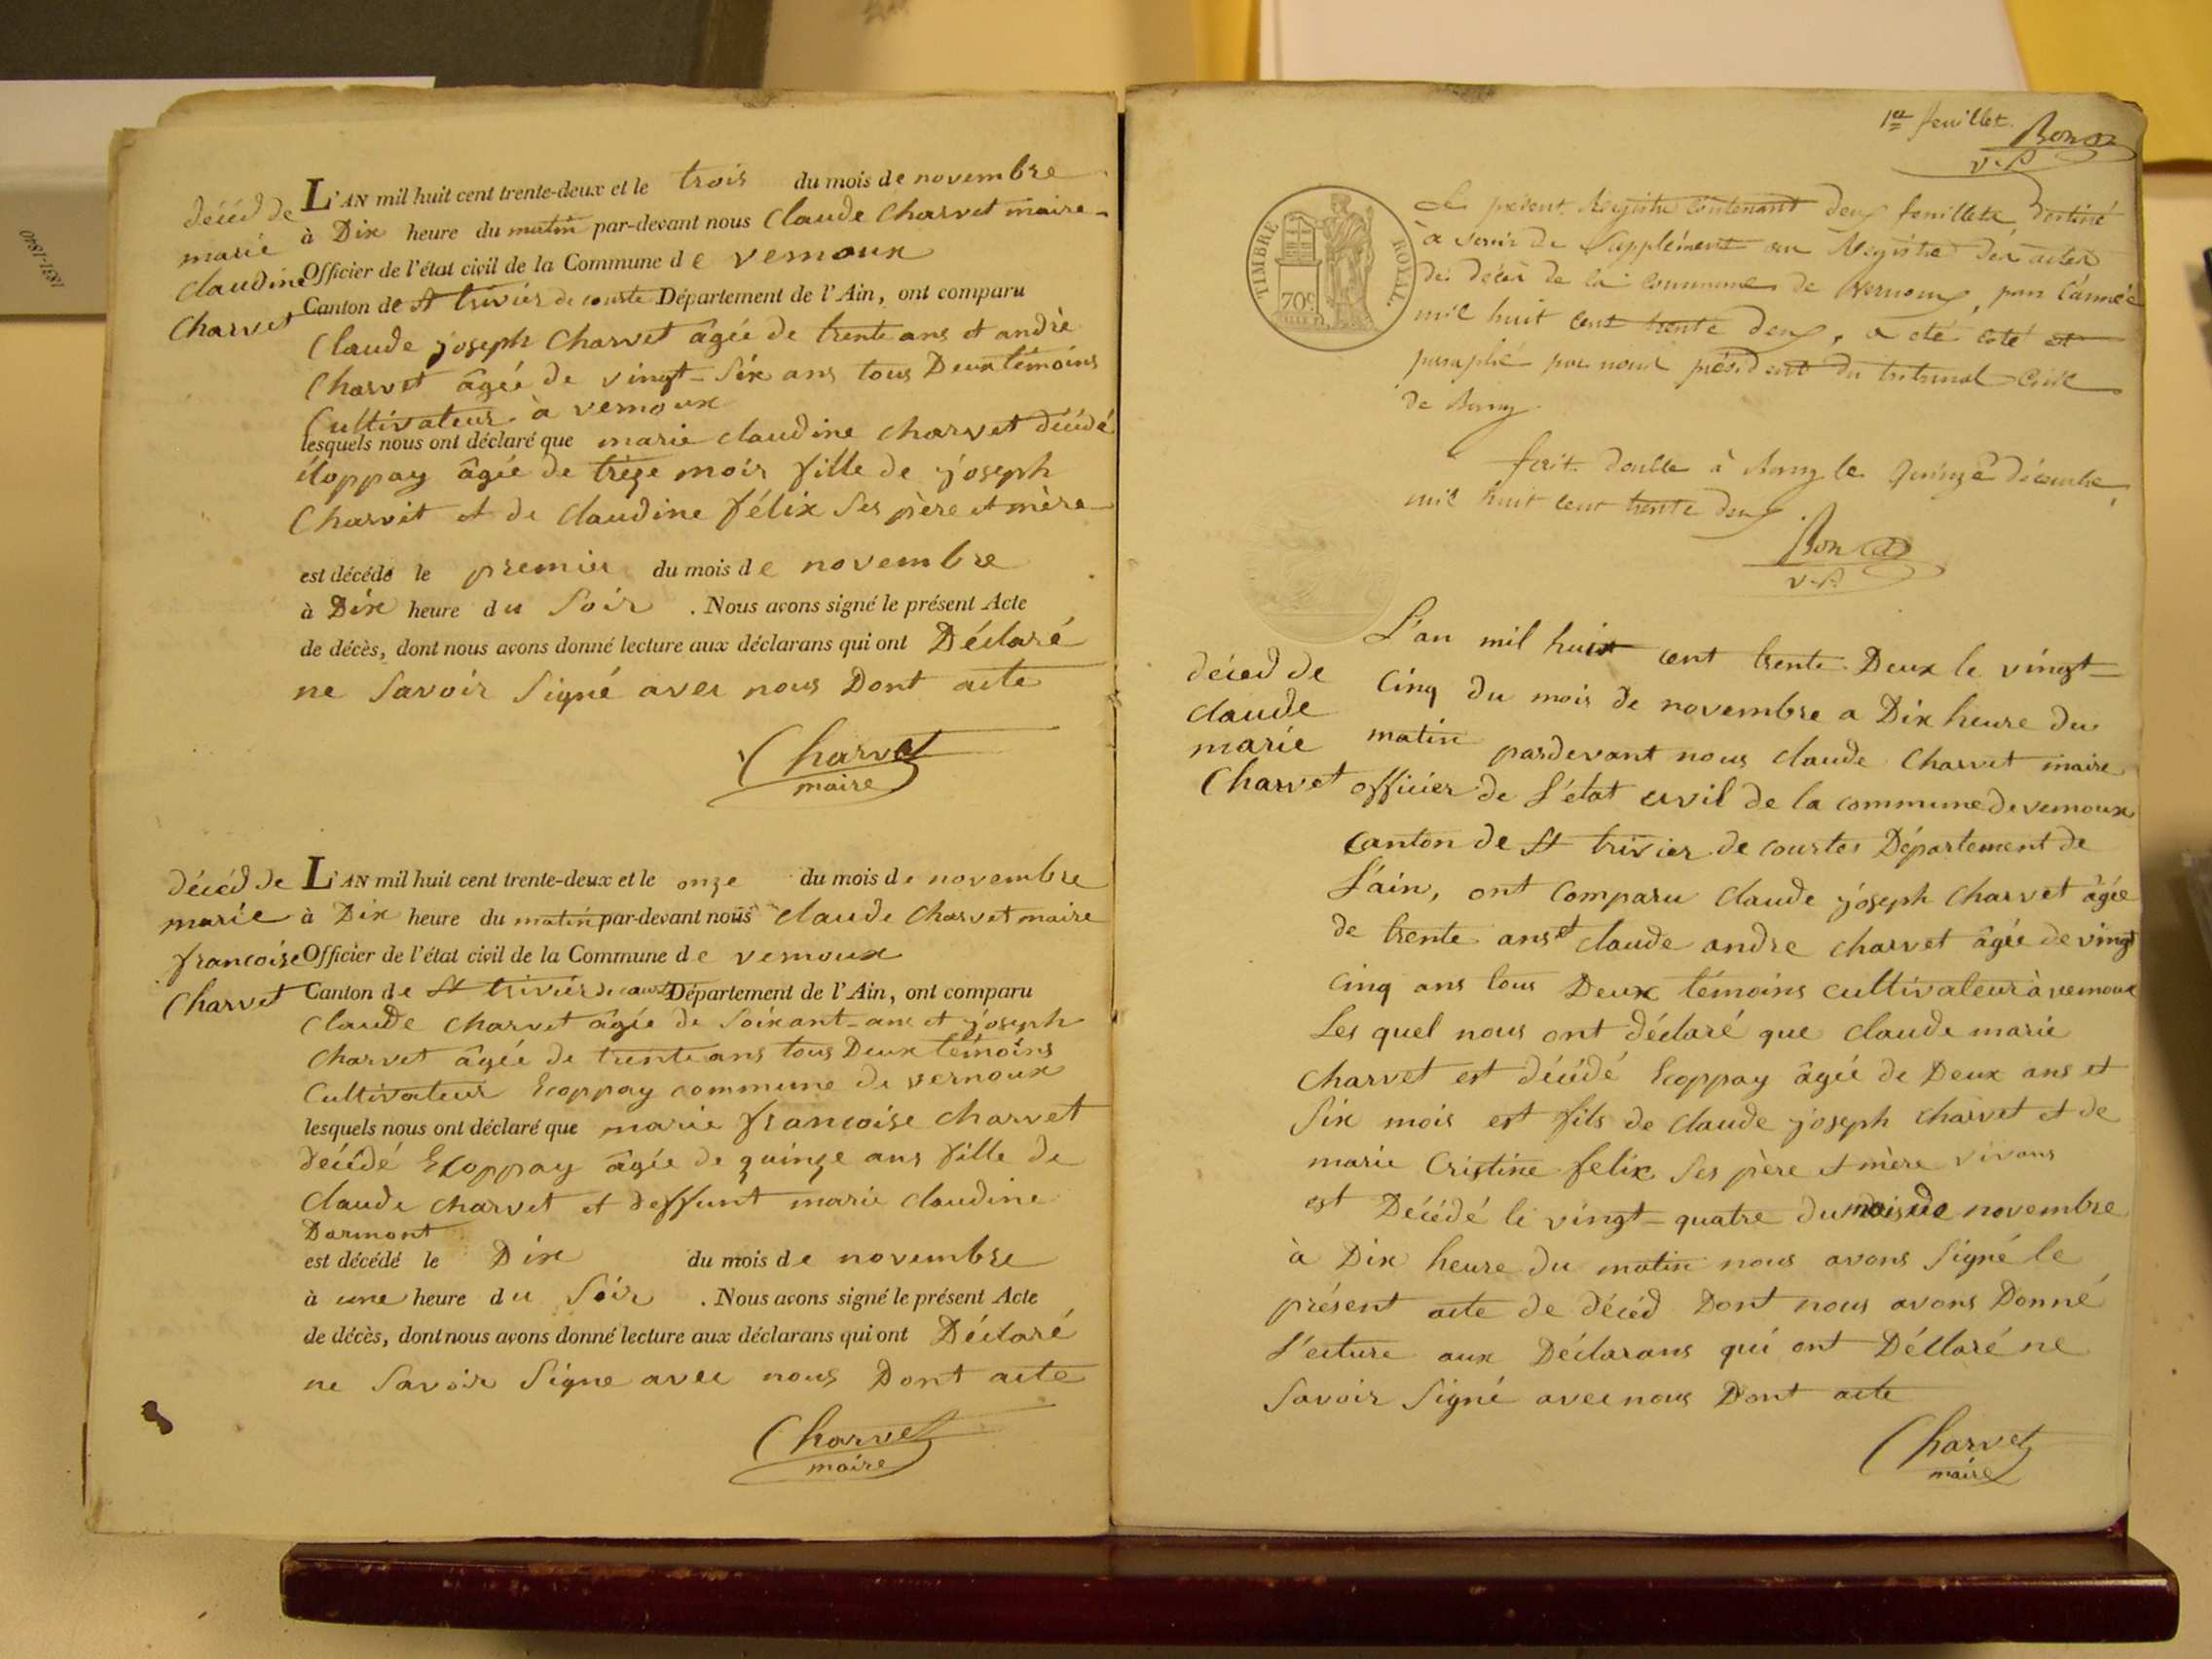 décéd de
marie
claudine
Charvet
L'AN mil huit cent trente-deux et le trois du mois de novembre
à Dix heure du matin par-devant nous Claude Charvet maire
Officier de l'état civil de la Commune de vernoux
Canton de St trivier de courte Département de l'Ain, ont comparu
Claude joseph Charvet âgée de trente ans et andré
Charvet âgée de vingt-Six ans tous Deux témoins
Cultivateur à vernoux
lesquels nous ont déclaré que marie claudine charvet décédé
âgée de treze mois fille de joseph
Charvet et de claudine félix Ses père et mère
est décédé le premier du mois de novembre
à Dix heure du Soir . Nous avons signé le présent Acte
de décès, dont nous avons donné lecture aux déclarans qui ont Déclaré
ne Savoir Signé avec nous Dont acte
Charvet
maire
décéd de
marie
francoise
Charvet
L'AN mil huit cent trente-deux et le onze du mois de novembre
à Dix heure du matin par-devant nous claude Charvet maire
Officier de l'état civil de la Commune de vernoux
Canton de St trivier de court Département de l'Ain, ont comparu
Claude charvet âgée de Soixant-ans et joseph
Charvet âgée de trente ans tous Deux témoins
Cultivateur Ecoppay commune de vernoux
lesquels nous ont déclaré que marie francoise charvet
décédé Ecoppay âgée de quinze ans fille de
claude charvet et deffunt marie claudine
Darmont
est décédé le Dix du mois de novembre
à une heure du Soir . Nous avons signé le présent Acte
de décès, dont nous avons donné lecture aux déclarans qui ont Déclaré
ne Savoir Signe avec nous Dont acte
Charvet
maire
1er feuillet.
V.P.
TIMBRE ROYAL.
70c
Le présent Registre contenant deux feuillets, destiné
à servir de Supplément au Registre des actes
de décès de la commune de Vernoux, pour l'année
mil huit cent trente deux, a été coté et
paraphé par nous président du tribunal civil
de Bourg
fait double à Bourg le quinze décembre
mil huit cent trente deux
V.P.
décéd de
claude
marie
Charvet
L'an mil huit cent trente Deux le vingt-
Cinq du mois de novembre a Dix heure du
matin pardevant nous claude Charvet maire
officier de L'état civil de la commune de vernoux
canton de St trivier de courtes Département de
L'ain, ont comparu claude joseph Charvet âgée
de trente ans et claude andre charvet âgée de vingt
cinq ans tous Deux témoins cultivateur à vernoux
Les quel nous ont déclaré que claude marie
charvet est décédé Ecoppay âgée de Deux ans et
Six mois est fils de claude joseph charvet et de
marie Cristine felix Ses père et mère vivans
est Décédé le vingt-quatre du mois de novembre
à Dix heure du matin nous avons Signé le
présent acte de décéd Dont nous avons Donné
L'ecture aux Déclarans qui ont Déclaré ne
Savoir Signé avec nous Dont acte
Charvet
maire
1831-1840